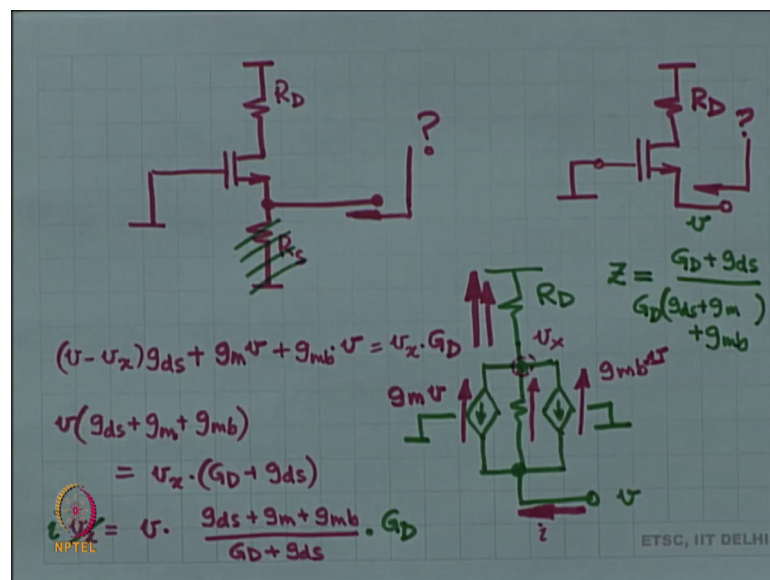 R_D
?
R_s
R_D
?
v
Z = \frac{G_D + g_{ds}}{G_D(g_{ds} + g_m) + g_{mb}}
R_D
v_x
g_m v
g_{mb} v
v
i
(v - v_x) g_{ds} + g_m v + g_{mb} \cdot v = v_x \cdot G_D
v(g_{ds} + g_m + g_{mb})
= v_x \cdot (G_D + g_{ds})
i = v \cdot \frac{g_{ds} + g_m + g_{mb}}{G_D + g_{ds}} \cdot G_D
NPTEL
ETSC, IIT DELHI